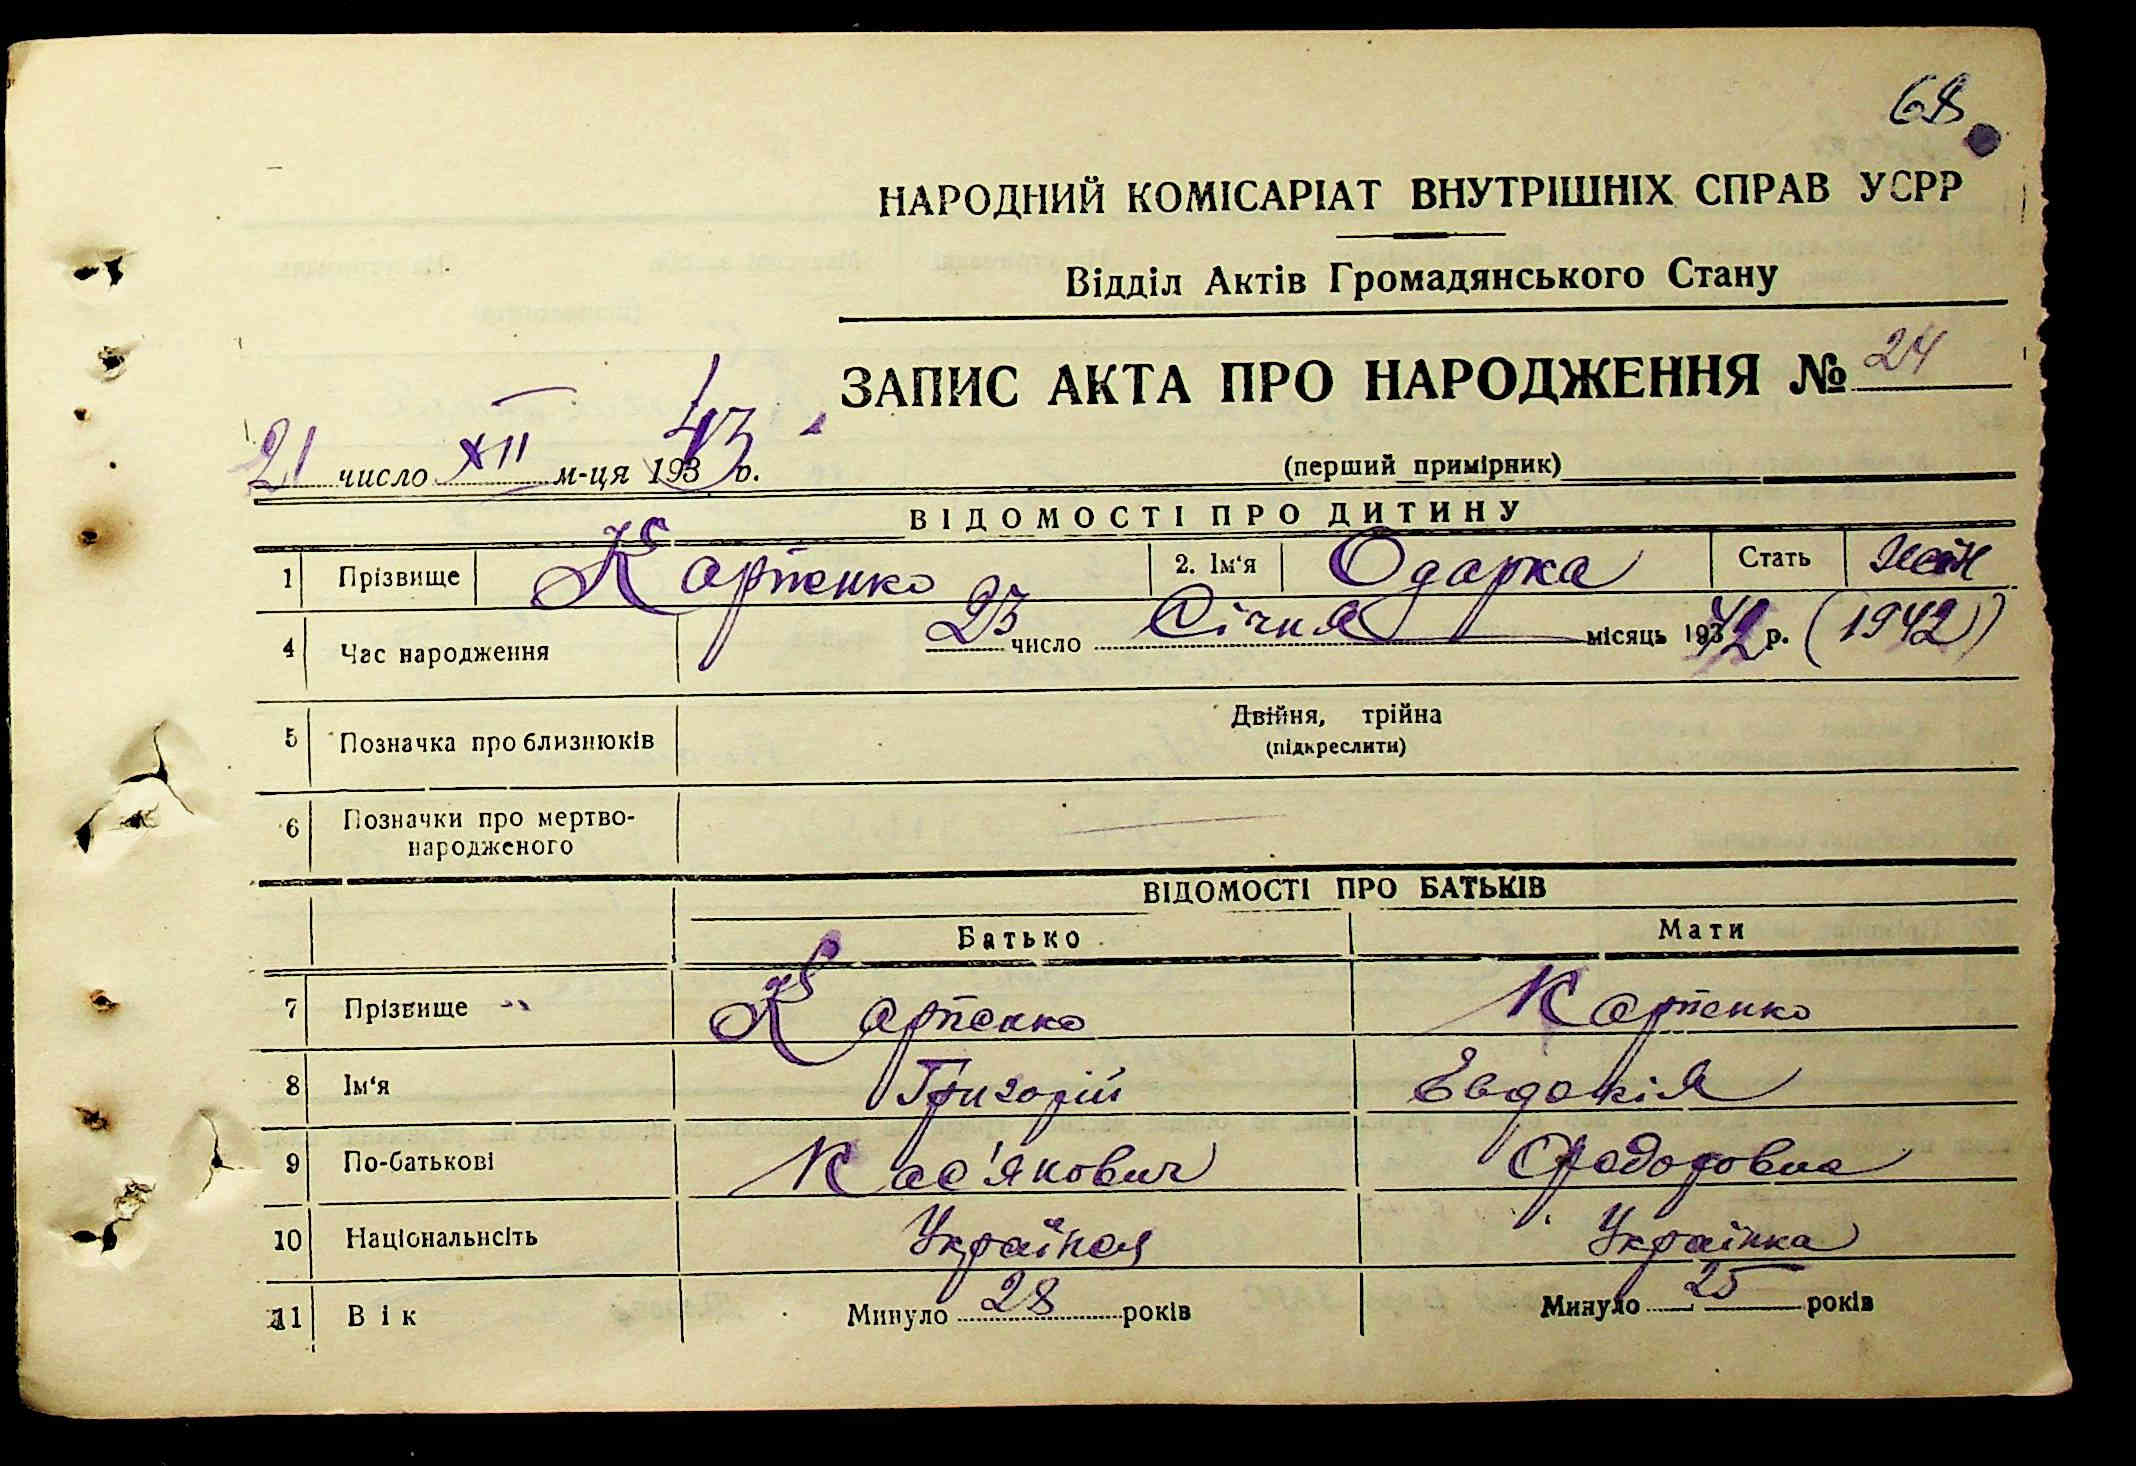 68
НАРОДНИЙ КОМІСАРІАТ ВНУТРІШНІХ СПРАВ УСРР
Відділ Актів Громадянського Стану
ЗАПИС АКТА ПРО НАРОДЖЕННЯ № 24
21 число XII м-ця 1943 р.
(перший примірник)
ВІДОМОСТІ ПРО ДИТИНУ
1 Прізвище Карпенко 2. Ім'я Одарка Стать жін
4 Час народження 23 число Січня місяць 1942 р. (1942)
5 Позначка про близнюків Двійня, трійна
(підкреслити)
6 Позначки про мертво-
народженого
ВІДОМОСТІ ПРО БАТЬКІВ
Батько Мати
7 Прізвище Карпенко Карпенко
8 Ім'я Григорій Евдокія
9 По-батькові Кас'янович Федоровна
10 Національнсіть Українец Українка
11 Вік Минуло 28 років Минуло 25 років